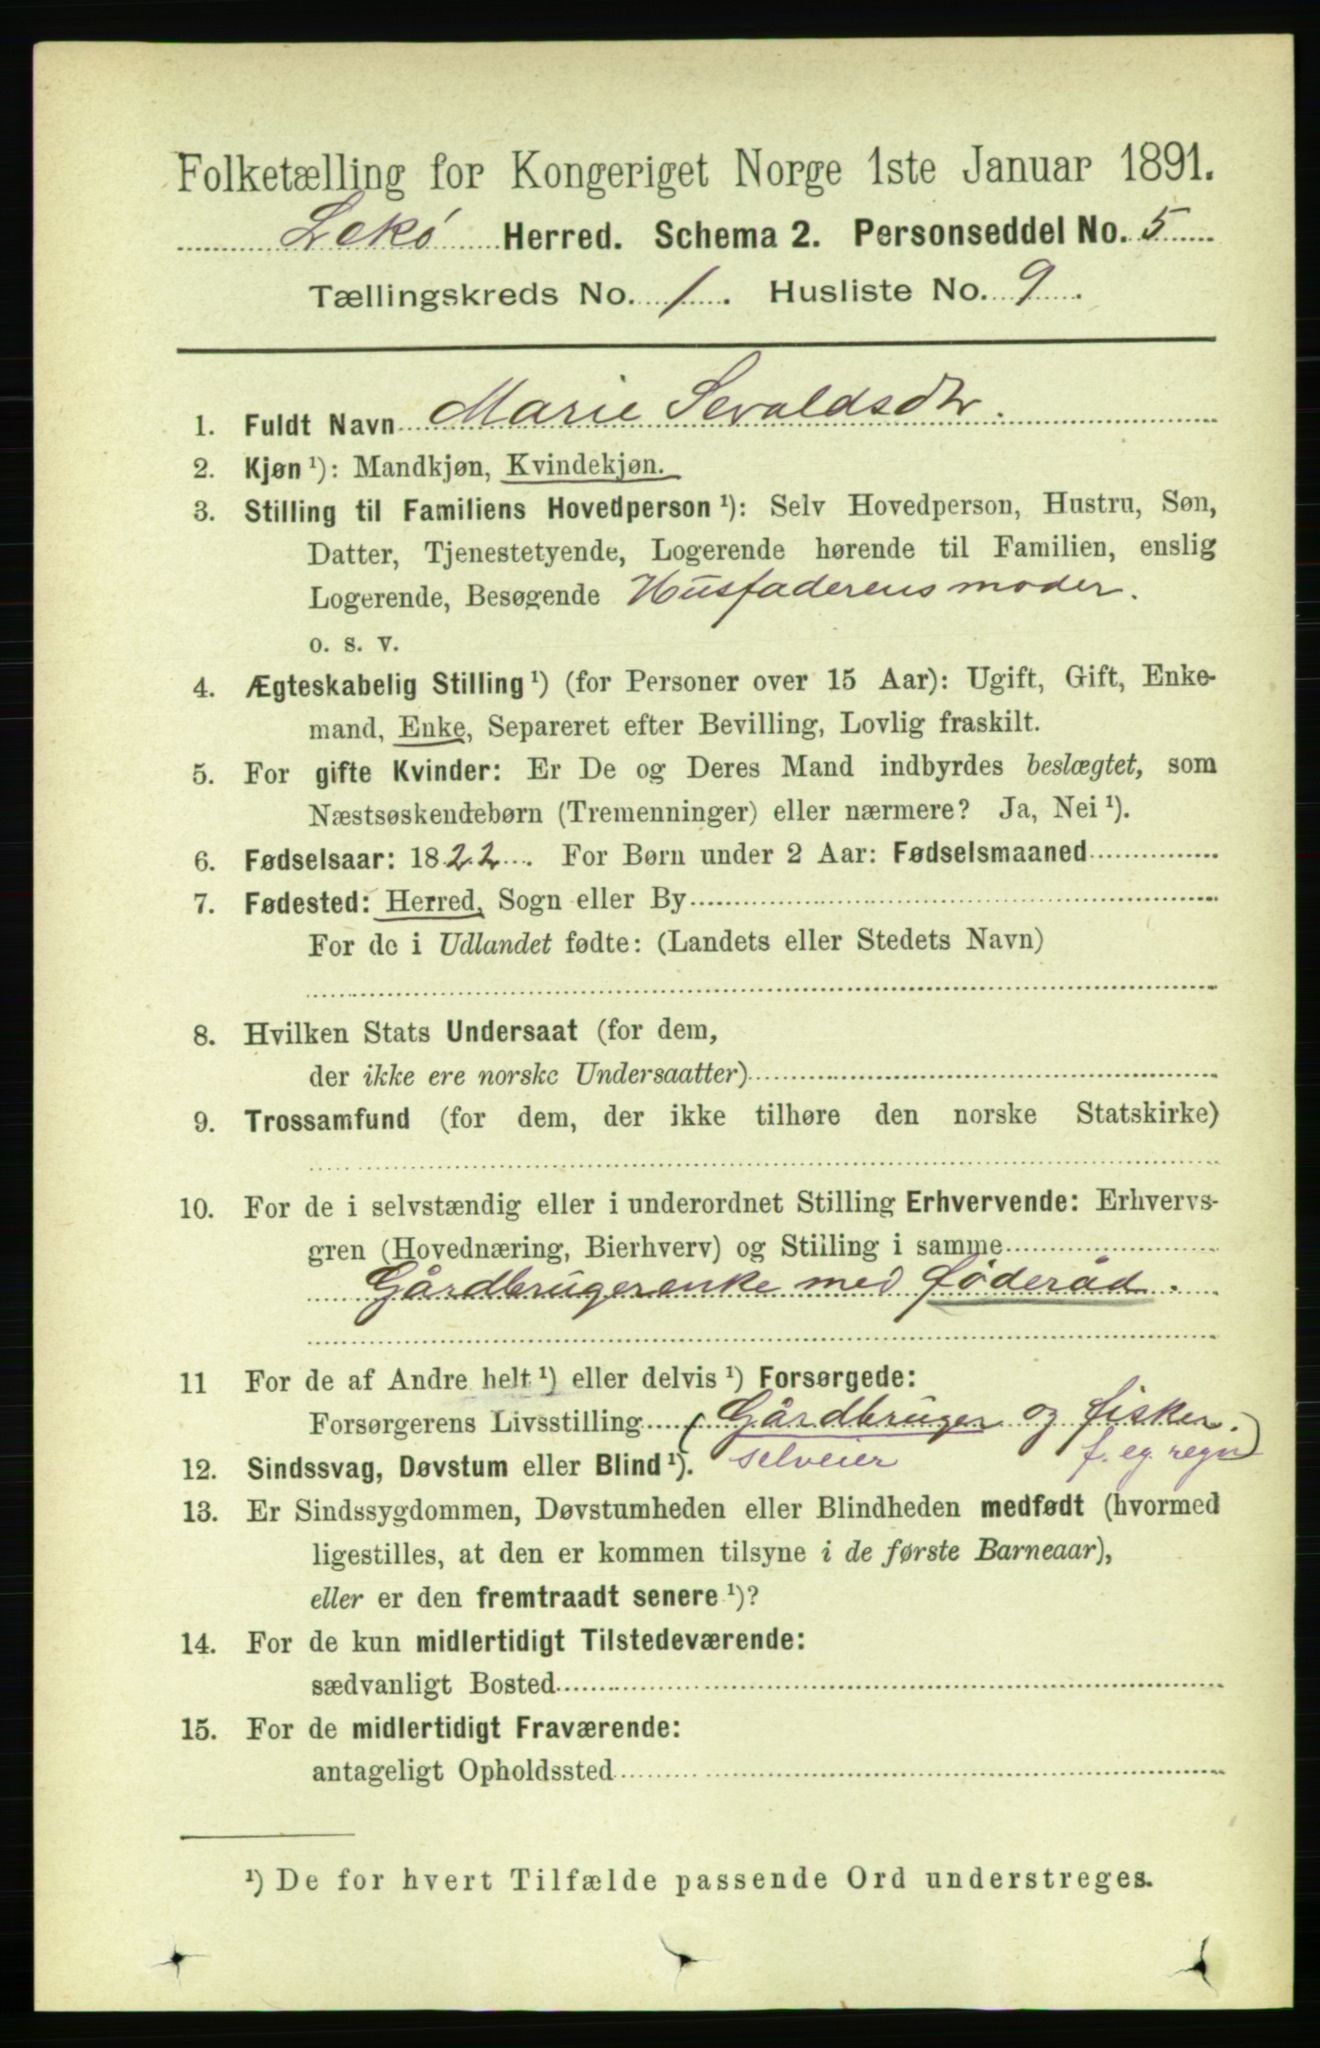 Folketælling for Kongeriget Norge 1ste Januar 1891.
Lekø Herred. Schema 2. Personseddel No. 5
Tællingskreds No. 1. Husliste No. 9
1. Fuldt Navn Marie Sevaldsdtr.
2. Kjøn ¹): Mandkjøn, Kvindekjøn.
3. Stilling til Familiens Hovedperson ¹): Selv Hovedperson, Hustru, Søn,
Datter, Tjenestetyende, Logerende hørende til Familien, enslig
Logerende, Besøgende Husfaderens moder.
o. s. v.
4. Ægteskabelig Stilling ¹) (for Personer over 15 Aar): Ugift, Gift, Enke-
mand, Enke, Separeret efter Bevilling, Lovlig fraskilt.
5. For gifte Kvinder: Er De og Deres Mand indbyrdes beslægtet, som
Næstsøskendebørn (Tremenninger) eller nærmere? Ja, Nei ¹).
6. Fødselsaar: 1822. For Børn under 2 Aar: Fødselsmaaned
7. Fødested: Herred, Sogn eller By
For de i Udlandet fødte: (Landets eller Stedets Navn)
8. Hvilken Stats Undersaat (for dem,
der ikke ere norske Undersaatter)
9. Trossamfund (for dem, der ikke tilhøre den norske Statskirke)
10. For de i selvstændig eller i underordnet Stilling Erhvervende: Erhvervs-
gren (Hovednæring, Bierhverv) og Stilling i samme
Gårdbrugerenke med föderåd.
11 For de af Andre helt ¹) eller delvis ¹) Forsørgede:
Forsørgerens Livsstilling (Gårdbruger og fisker.)
12. Sindssvag, Døvstum eller Blind ¹). selveier f. eg. regn
13. Er Sindssygdommen, Døvstumheden eller Blindheden medfødt (hvormed
ligestilles, at den er kommen tilsyne i de første Barneaar),
eller er den fremtraadt senere ¹)?
14. For de kun midlertidigt Tilstedeværende:
sædvanligt Bosted
15. For de midlertidigt Fraværende:
antageligt Opholdssted
¹) De for hvert Tilfælde passende Ord understreges.